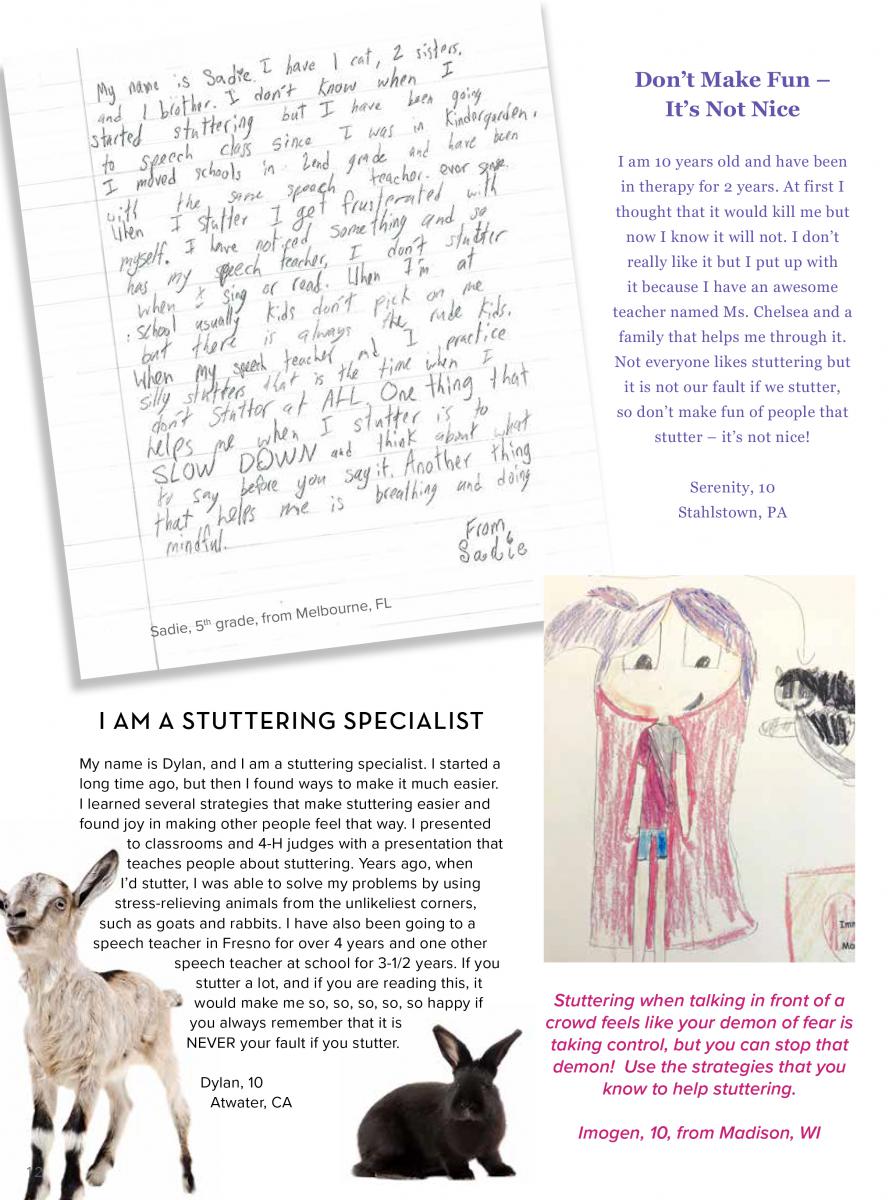 My name is Sadie. I have 1 cat, 2 sisters,
and 1 brother. I don't know when I
started stuttering but I have been going
to speech class since I was in Kindergarden.
I moved schools in 2end grade and have been
with the same speech teacher. ever
When I stutter I get frusterated with
myself. I have noticed something and so
has my speech teacher, I don't stutter
when I sing or read. When I'm at
school usually kids don't pick on me
but there is always the rude kids.
When my speech teacher and I practice
silly stutters that is the time when I
don't stutter at ALL. One thing that
helps me when I stutter is to
SLOW DOWN and think about what
to say before you say it. Another thing
that helps me is breathing and doing
mindful.
From,
Sadie
Sadie, 5th grade, from Melbourne, FL
Don't Make Fun –
It's Not Nice
I am 10 years old and have been
in therapy for 2 years. At first I
thought that it would kill me but
now I know it will not. I don't
really like it but I put up with
it because I have an awesome
teacher named Ms. Chelsea and a
family that helps me through it.
Not everyone likes stuttering but
it is not our fault if we stutter,
so don't make fun of people that
stutter – it's not nice!
Serenity, 10
Stahlstown, PA
I AM A STUTTERING SPECIALIST
My name is Dylan, and I am a stuttering specialist. I started a
long time ago, but then I found ways to make it much easier.
I learned several strategies that make stuttering easier and
found joy in making other people feel that way. I presented
to classrooms and 4-H judges with a presentation that
teaches people about stuttering. Years ago, when
I'd stutter, I was able to solve my problems by using
stress-relieving animals from the unlikeliest corners,
such as goats and rabbits. I have also been going to a
speech teacher in Fresno for over 4 years and one other
speech teacher at school for 3-1/2 years. If you
stutter a lot, and if you are reading this, it
would make me so, so, so, so, so happy if
you always remember that it is
NEVER your fault if you stutter.
Dylan, 10
Atwater, CA
Stuttering when talking in front of a
crowd feels like your demon of fear is
taking control, but you can stop that
demon! Use the strategies that you
know to help stuttering.
Imogen, 10, from Madison, WI
12